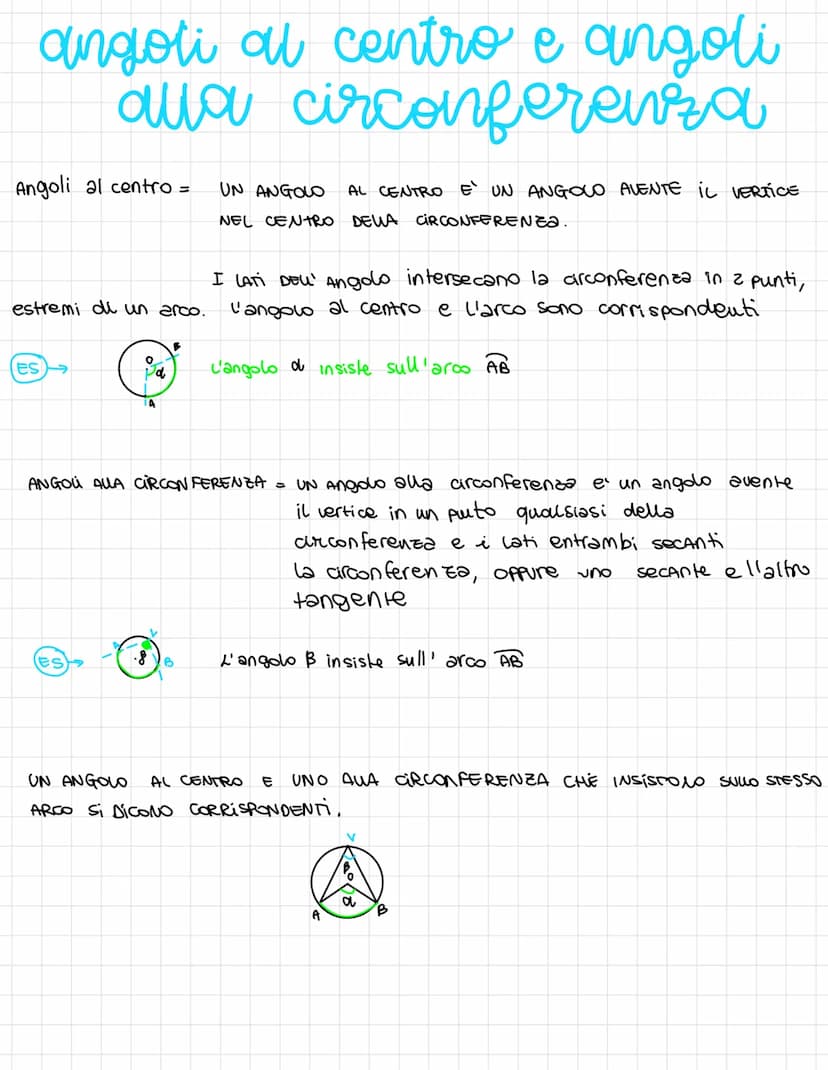 angoli al centro e angoli
alla circonferenza
Angoli al centro = UN ANGOLO AL CENTRO E' UN ANGOLO AVENTE IL VERTICE
NEL CENTRO DELLA CIRCONFERENZA.
I LATI DELL' ANGOLO intersecano la circonferenza in 2 punti,
estremi di un arco. L'angolo al centro e l'arco sono corrispondenti
ES →
O
B
α
A
L'angolo α insiste sull'arco AB
ANGOLI ALLA CIRCONFERENZA = UN ANgolo alla circonferenza e' un angolo avente
il vertice in un puto qualsiasi della
circonferenza e i lati entrambi secanti
la circonferenza, oppure uno secante e l'altro
tangente
ES →
A
V
β
B
L'angolo β insiste sull' arco AB
UN ANGOLO AL CENTRO E UNO ALLA CIRCONFERENZA CHE INSISTONO SULLO STESSO
ARCO SI DICONO CORRISPONDENTI.
V
β
O
α
A
B